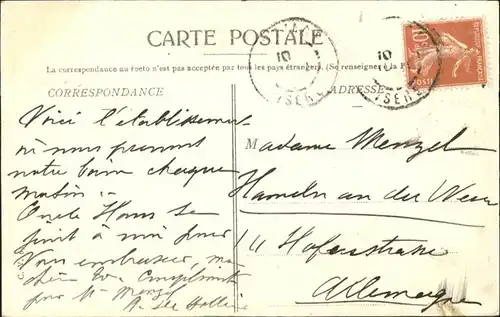 CARTE POSTALE
La correspondance au recto n'est pas acceptée par tous les pays étrangers. (Se renseigner à la P
CORRESPONDANCE
ADRESSE
ISÈRE
ISÈRE
10
POSTES
Voici l'établissement
où nous prenons
notre bain chaque
matin
Oncle Hans se
joint à moi pour
Vous embrasser, ma
chère Compliments
pour Mr Menzel
Madame Menzel
Hameln an der Weser
14 Hafenstrasse
Allemagne